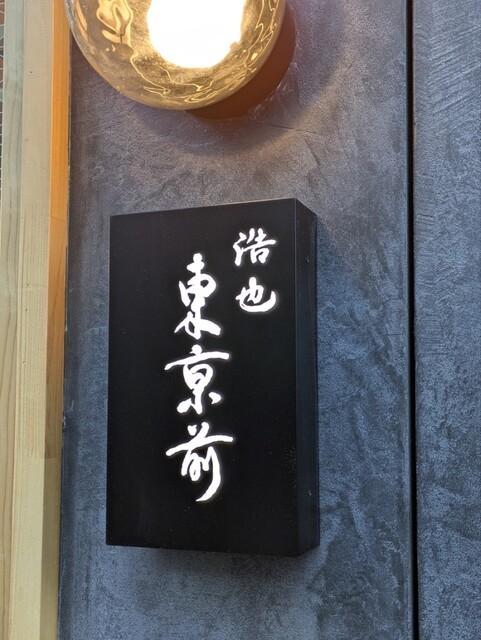 浩也
東京前